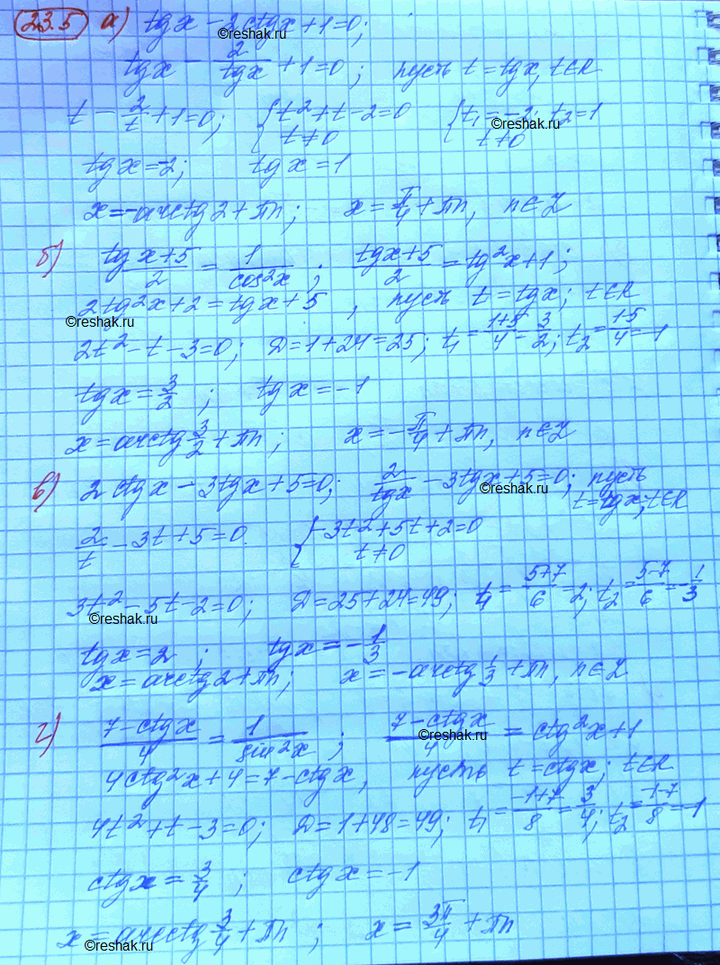 23.5 а) tgx - 2ctgx + 1 = 0;
©reshak.ru
tgx - 2/tgx + 1 = 0; пусть t = tgx, t∈R
t - 2/t + 1 = 0; { t² + t - 2 = 0 { t₁ = -2; t₂ = 1
t ≠ 0 t ≠ 0
©reshak.ru
tgx = -2; tgx = 1
x = -arctg2 + πn; x = π/4 + πn, n∈Z
б) (tgx+5)/2 = 1/cos²x; (tgx+5)/2 = tg²x + 1;
2tg²x + 2 = tgx + 5, пусть t = tgx; t∈R
©reshak.ru
2t² - t - 3 = 0; D = 1 + 24 = 25; t₁ = (1+5)/4 = 3/2; t₂ = (1-5)/4 = -1
tgx = 3/2; tgx = -1
x = arctg 3/2 + πn; x = -π/4 + πn, n∈Z
в) 2ctgx - 3tgx + 5 = 0; 2/tgx - 3tgx + 5 = 0; пусть
©reshak.ru
t = tgx, t∈R
2/t - 3t + 5 = 0 { -3t² + 5t + 2 = 0
t ≠ 0
3t² - 5t - 2 = 0; D = 25 + 24 = 49; t₁ = (5+7)/6 = 2; t₂ = (5-7)/6 = -1/3
©reshak.ru
tgx = 2; tgx = -1/3
x = arctg2 + πn; x = -arctg 1/3 + πn, n∈Z
г) (7-ctgx)/4 = 1/sin²x; (7-ctgx)/4 = ctg²x + 1
©reshak.ru
4ctg²x + 4 = 7 - ctgx, пусть t = ctgx; t∈R
4t² + t - 3 = 0; D = 1 + 48 = 49; t₁ = (-1+7)/8 = 3/4; t₂ = (-1-7)/8 = -1
ctgx = 3/4; ctgx = -1
x = arcctg 3/4 + πn; x = 3π/4 + πn
©reshak.ru